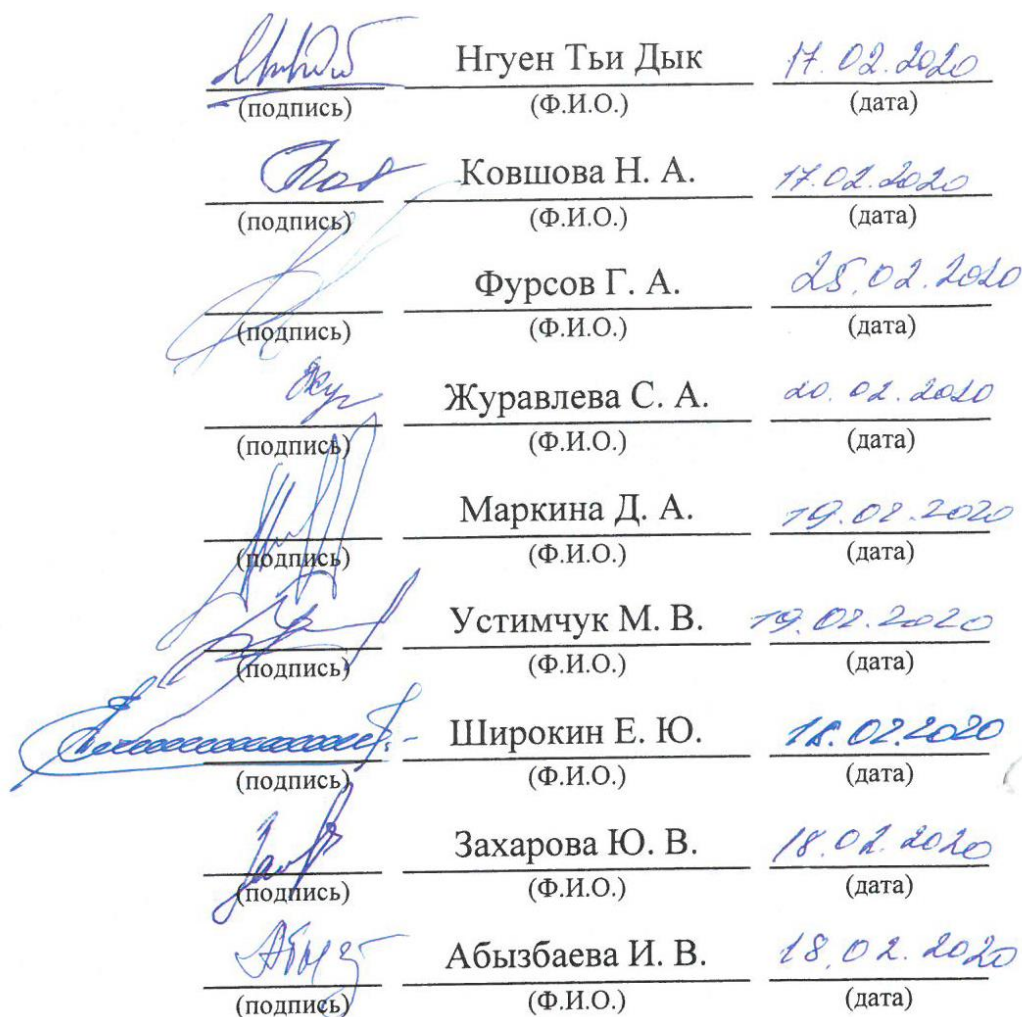 Нгуен Тьи Дык 17.02.2020
(подпись) (Ф.И.О.) (дата)
Ковшова Н. А. 17.02.2020
(подпись) (Ф.И.О.) (дата)
Фурсов Г. А. 25.02.2020
(подпись) (Ф.И.О.) (дата)
Журавлева С. А. 20.02.2020
(подпись) (Ф.И.О.) (дата)
Маркина Д. А. 19.02.2020
(подпись) (Ф.И.О.) (дата)
Устимчук М. В. 19.02.2020
(подпись) (Ф.И.О.) (дата)
Широкин Е. Ю. 18.02.2020
(подпись) (Ф.И.О.) (дата)
Захарова Ю. В. 18.02.2020
(подпись) (Ф.И.О.) (дата)
Абызбаева И. В. 18.02.2020
(подпись) (Ф.И.О.) (дата)